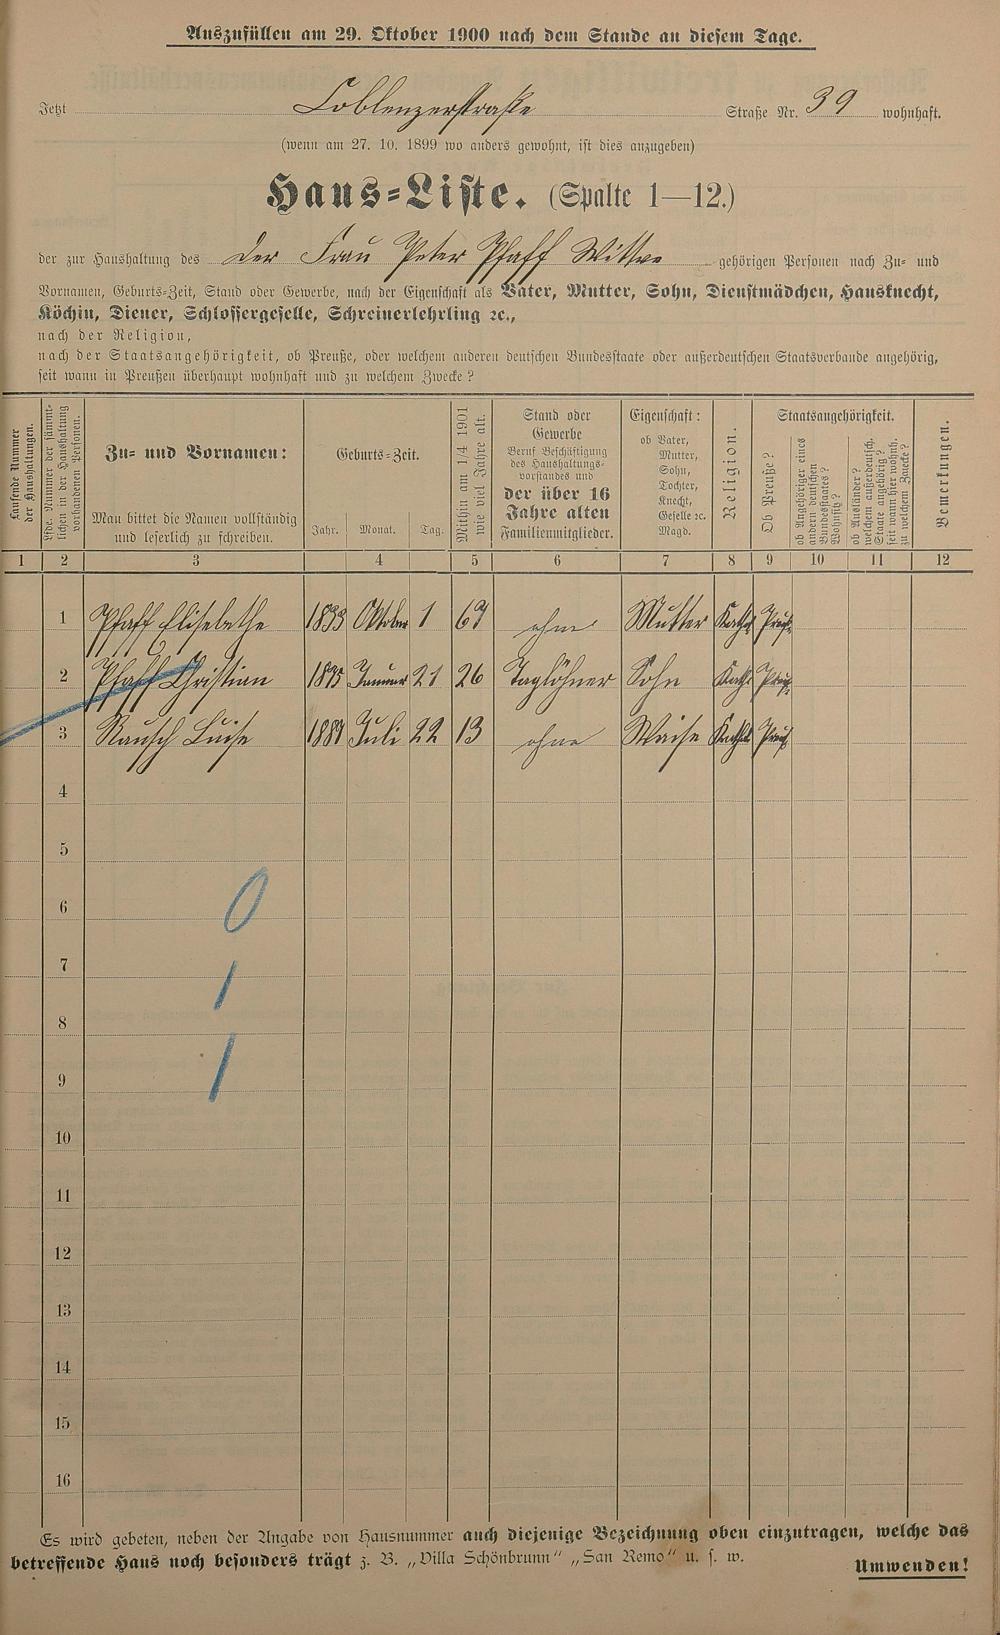 Auszufüllen am 29. Oktober 1900 nach dem Stande an diesem Tage.
Jetzt Coblenzerstraße Straße Nr. 39 wohnhaft.
(wenn am 27. 10. 1899 wo anders gewohnt, ist dies anzugeben)
Haus-Liste. (Spalte 1—12.)
der zur Haushaltung des der Frau Peter Pfaff Wittwe gehörigen Personen nach Zu- und
Vornamen, Geburts-Zeit, Stand oder Gewerbe, nach der Eigenschaft als Vater, Mutter, Sohn, Dienstmädchen, Hausknecht,
Köchin, Diener, Schlossergeselle, Schreinerlehrling ꝛc.,
nach der Religion,
nach der Staatsangehörigkeit, ob Preuße, oder welchem anderen deutschen Bundesstaate oder außerdeutschen Staatsverbande angehörig,
seit wann in Preußen überhaupt wohnhaft und zu welchem Zwecke?
Laufende Nummer
der Haushaltungen.
Lfde. Nummer der sämmt-
lichen in der Haushaltung
vorhandenen Personen.
Zu- und Vornamen:
Man bittet die Namen vollständig
und leserlich zu schreiben.
Geburts-Zeit.
Jahr. Monat. Tag.
Mithin am 1/4 1901
wie viel Jahre alt.
Stand oder
Gewerbe
Beruf Beschäftigung
des Haushaltungs-
vorstandes und
der über 16
Jahre alten
Familienmitglieder.
Eigenschaft:
ob Vater,
Mutter,
Sohn,
Tochter,
Knecht,
Geselle ꝛc.
Magd.
Religion.
Staatsangehörigkeit.
Ob Preuße?
ob Angehöriger eines
andern deutschen
Bundesstaates?
Wohnsitz?
ob Ausländer?
welchem außerdeutsch.
Staate angehörig?
seit wann hier wohnh.
zu welchem Zwecke?
Bemerkungen.
1 2 3 4 5 6 7 8 9 10 11 12
1 Pfaff Elisabethe 1833 Oktober 1 67 ohne Mutter Kathol Preuß.
2 Pfaff Christian 1875 Januar 21 26 Taglöhner Sohn Kath. Preuß.
3 Rausch Luise 1887 Juli 22 13 ohne Waise Kathol Preuß
4
5
6 0
7 1
8
9 1
10
11
12
13
14
15
16
Es wird gebeten, neben der Angabe von Hausnummer auch diejenige Bezeichnung oben einzutragen, welche das
betreffende Haus noch besonders trägt z. B. „Villa Schönbrunn“ „San Remo“ u. s. w. Umwenden!